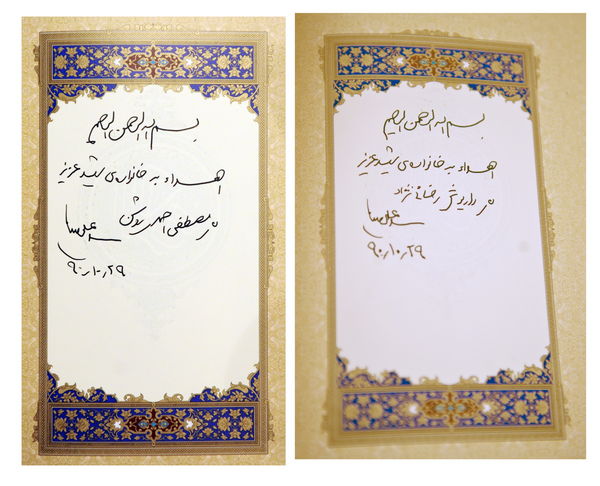 بسم الله الرحمن الرحیم
اهداء به خانواده‌ی شهید عزیز
مصطفی احمدی روشن
سید علی خامنه‌ای
۹۰/۱۰/۲۹
بسم الله الرحمن الرحیم
اهداء به خانواده‌ی شهید عزیز
داریوش رضائی نژاد
سید علی خامنه‌ای
۹۰/۱۰/۲۹